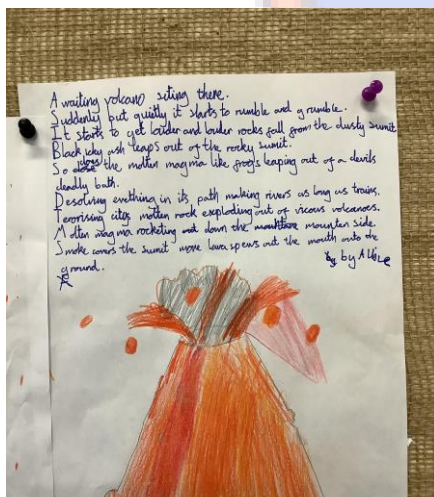 A waiting volcano siting there.
Suddenly but quietly it starts to rumble and grumble.
It starts to get louder and louder rocks fall from the dusty sumit
Black icky ash leaps out of the rocky sumit.
So does the molten magma like frogs leaping out of a devils
deadly bath.
Desolving evething in its path making rivers as long as trains.
Terorising citys molten rock exploding out of vicous volcanoes.
Molten magma rocketing down the mounten side.
Smoke covers the sumit more lava spews out the mouth onto the
ground.
by Alfie